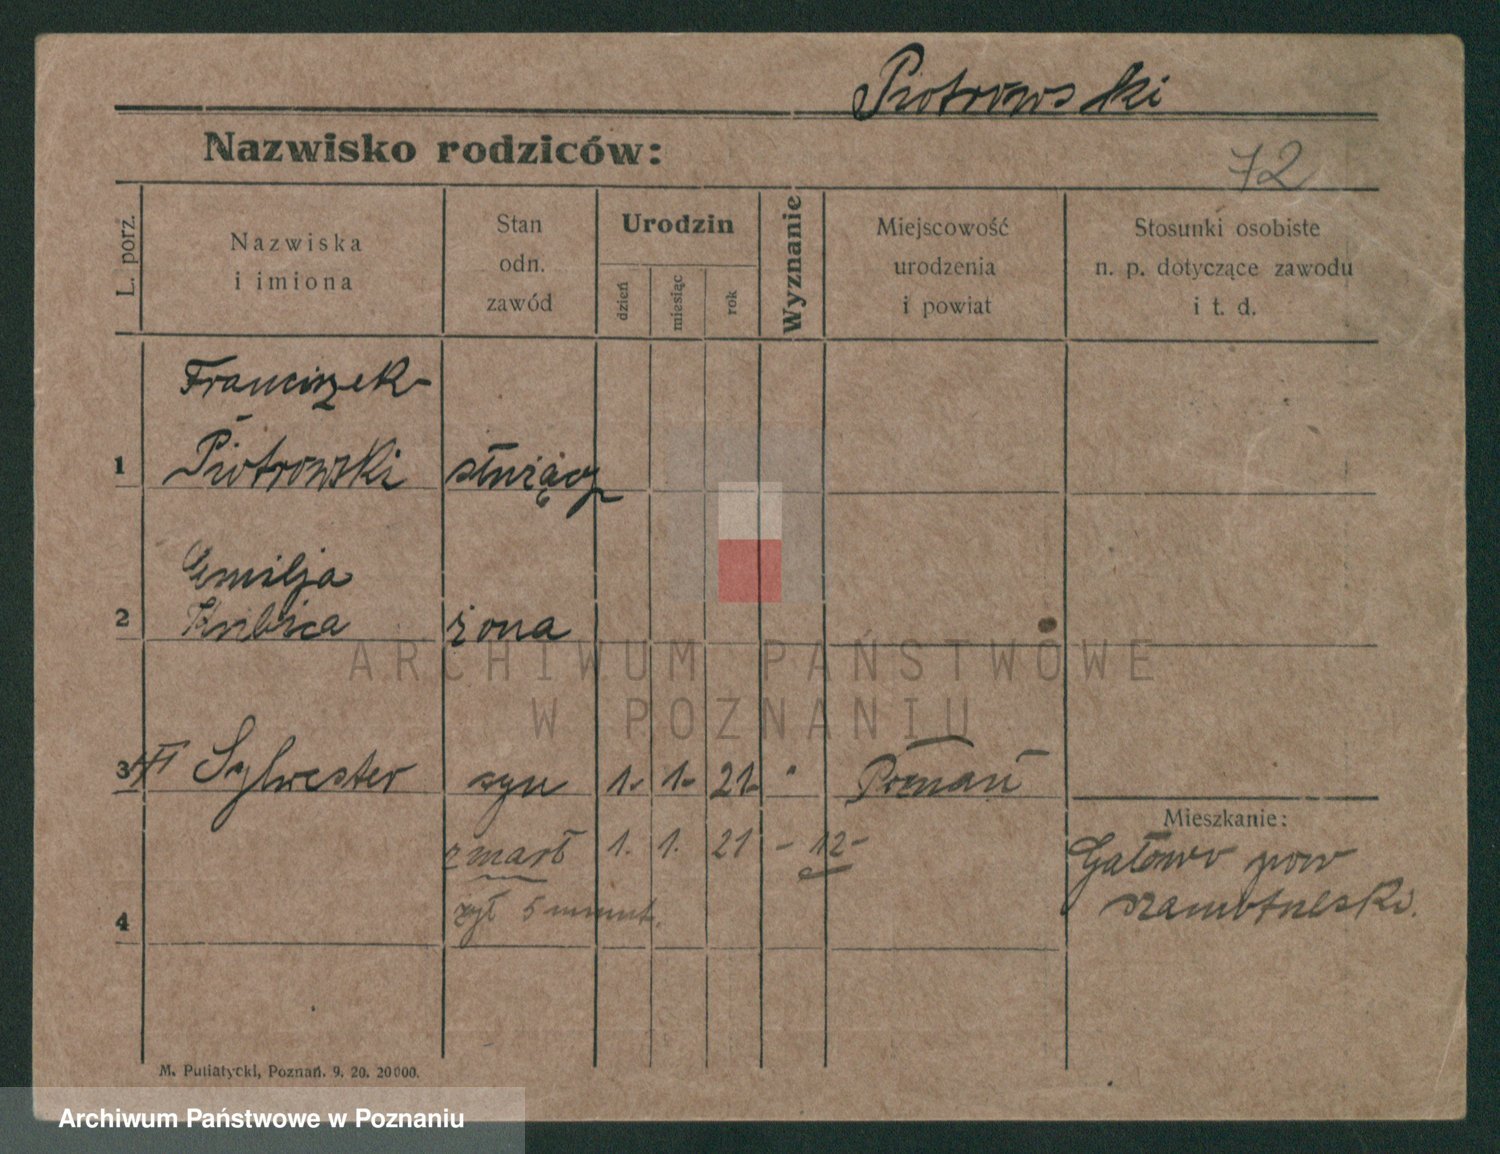 Piotrowski
Nazwisko rodziców:
72
L. porz.
Nazwiska
i imiona
Stan
odn.
zawód
Urodzin
dzień
miesiąc
rok
Wyznanie
Miejscowość
urodzenia
i powiat
Stosunki osobiste
n. p. dotyczące zawodu
i t. d.
Franciszek
1 Piotrowski służący
Emilja
2 Kubica żona
3 Sylwester syn 1. 1. 21. " Poznań
Mieszkanie:
zmarł 1. 1. 21 - 12 -
Gałowo pow
żył 5 minut.
szamotulski.
4
M. Putiatycki, Poznań. 9. 20. 20000.
ARCHIWUM PAŃSTWOWE
W POZNANIU
Archiwum Państwowe w Poznaniu